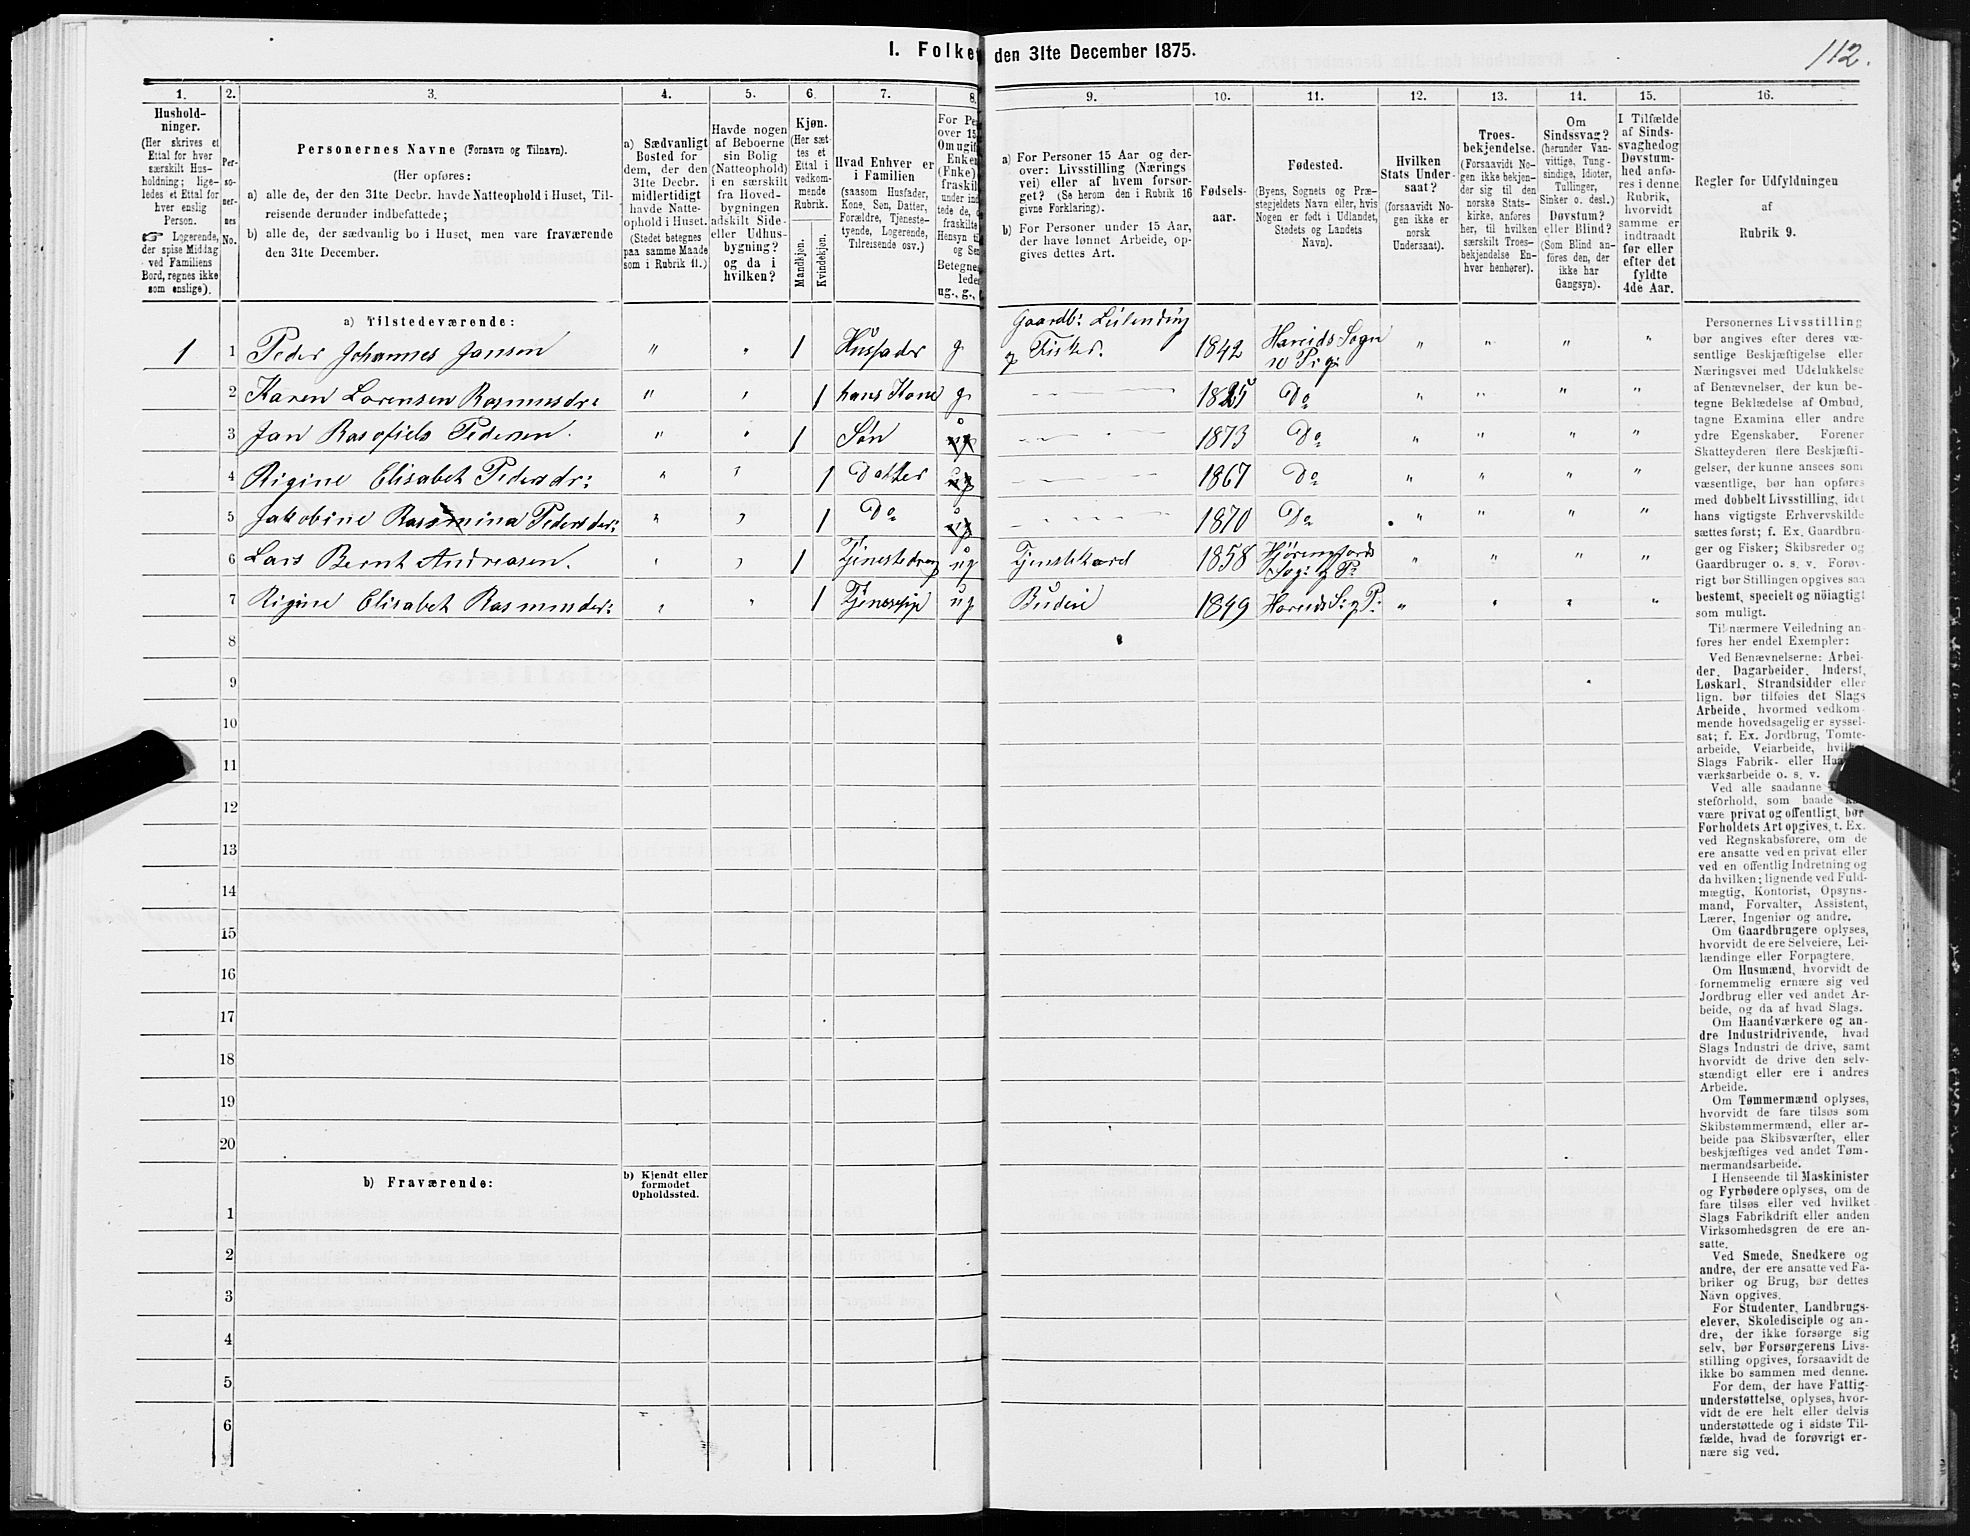 I. Folke den 31te December 1875.
112.
1. 2. 3. 4. 5. 6. 7. 8. 9. 10. 11. 12. 13. 14. 15. 16.
Hushold-
ninger.
(Her skrives et
Ettal for hver
særskilt Hus-
holdning; lige-
ledes et Ettal for
hver enslig
Person.
☞ Logerende,
der spise Middag
ved Familiens
Bord, regnes ikke
som enslige).
Per-
so-
ner-
nes
No.
Personernes Navne (Fornavn og Tilnavn).
(Her opføres:
a) alle de, der den 31te Decbr. havde Natteophold i Huset, Til-
reisende derunder indbefattede;
b) alle de, der sædvanlig bo i Huset, men vare fraværende
den 31te December.
a) Sædvanligt
Bosted for
dem, der den
31te Decbr.
midlertidigt
havde Natte-
ophold i Huset.
(Stedet betegnes
paa samme Maade
som i Rubrik 11.)
Havde nogen
af Beboerne
sin Bolig
(Natteophold)
i en særskilt
fra Hoved-
bygningen
adskilt Side-
eller Udhus-
bygning?
og da i
hvilken?
Kjøn.
(Her sæt-
tes et
Ettal i
vedkom-
mende
Rubrik.
Mandkjøn.
Kvindekjøn.
Hvad Enhver er
i Familien
(saasom Husfader,
Kone, Søn, Datter,
Forældre, Tjeneste-
tyende, Logerende,
Tilreisende osv.)
For Pe
over 15
Om ugif
Enken
(Fnke),
fraskil
under ind
tede de, d
fraskilte
Hensyn ti
og Sen
Betegne
lede
ug., g.,
a) For Personer 15 Aar og der-
over: Livsstilling (Nærings
vei) eller af hvem forsør-
get? (Se herom den i Rubrik 16
givne Forklaring).
b) For Personer under 15 Aar,
der have lønnet Arbeide, op-
gives dettes Art.
Fødsels-
aar.
Fødested.
(Byens, Sognets og Præ-
stegjeldets Navn eller, hvis
Nogen er født i Udlandet,
Stedets og Landets
Navn).
Hvilken
Stats Under-
saat?
(forsaavidt No-
gen ikke er
norsk
Undersaat).
Troes-
bekjendelse.
(Forsaavidt No-
gen ikke bekjen-
der sig til den
norske Stats-
kirke, anføres
her, til hvilken
særskilt Troes-
bekjendelse En-
hver henhører).
Om
Sindssvag?
(herunder Van-
vittige, Tung-
sindige, Idioter,
Tullinger,
Sinker o. desl.)
Døvstum?
eller Blind?
(Som Blind an-
føres den, der
ikke har
Gangsyn).
I Tilfælde
af Sinds-
svaghed og
Døvstum-
hed anfø-
res i denne
Rubrik,
hvorvidt
samme er
indtraadt
før eller
efter det
fyldte
4de Aar.
Regler for Udfyldningen
af
Rubrik 9.
a) Tilstedeværende:
1 1 Peder Johannes Jansen " " 1 Husfader g Gaardb: Leilending
g Fisker. 1842 Harrids Sogn
" " " "
2 Karen Lorensen Rasmusdr: " " 1 hans Kone g 1825 Do " " " "
3 Jan Pedersen " " 1 Søn 1873 Do " " " "
4 Rigine Elisabet Pedersdr: " " 1 Datter ug 1867 Do " " " "
5 Jakobine Rasmina Pedersdr: " " 1 Do 1870 Do " " " "
6 Lars Bernt Andreasen. " " 1 Tjenestedreng ug 1858 " " " "
7 Rigine Elisabet Rasmusdr: " " 1 ug Budeie 1849 " " " "
8
9
10
11
12
13
14
15
16
17
18
19
20
b) Fraværende:
b) Kjendt eller
formodet
Opholdssted.
1
2
3
4
5
6
Personernes Livsstilling
bør angives efter deres væ-
sentlige Beskjæftigelse eller
Næringsvei med Udelukkelse
af Benævnelser, der kun be-
tegne Beklædelse af Ombud,
tagne Examina eller andre
ydre Egenskaber. Forener
Skatteyderen flere Beskjæfti-
gelser, der kunne ansees som
væsentlige, bør han opføres
med dobbelt Livsstilling, idet
hans vigtigste Erhvervskilde
sættes først; f. Ex. Gaardbru-
ger og Fisker; Skibsreder og
Gaardbruger o. s. v. Forøv-
rigt bør Stillingen opgives saa
bestemt, specielt og nöiagtigt
som muligt.
Til nærmere Veiledning an-
føres her endel Exempler:
Ved Benævnelserne: Arbei-
der, Dagarbeider, Inderst,
Løskarl, Strandsidder eller
lign. bør tilføies det Slags
Arbeide, hvormed vedkom-
mende hovedsagelig er syssel-
sat; f. Ex. Jordbrug, Tomte-
arbeide, Veiarbeide,
Slags Fabrik- eller
værksarbeide o. s. v.
Ved alle saadanne
steforhold, som baade
være privat og offentligt, bør
Forholdets Art opgives, t. Ex.
ved Regnskabsførere, om de
ere ansatte ved en privat eller
ved en offentlig Indretning og
da hvilken; lignende ved Fuld-
mægtig, Kontorist, Opsyns-
mand, Forvalter, Assistent,
Lærer, Ingeniør og andre.
Om Gaardbrugere oplyses,
hvorvidt de ere Selveiere, Lei-
lændinge eller Forpagtere.
Om Husmænd, hvorvidt de
fornemmelig ernære sig ved
Jordbrug eller ved andet Ar-
beide, og da af hvad Slags.
Om Haandværkere og an-
dre Industridrivende, hvad
Slags Industri de drive, samt
hvorvidt de drive den selv-
stændigt eller ere i andres
Arbeide.
Om Tømmermænd oplyses,
hvorvidt de fare tilsøs som
Skibstømmermænd, eller ar-
beide paa Skibsværfter, eller
beskjæftiges ved andet Tøm-
mermandsarbeide.
I Henseende til Maskinister
og Fyrbødere oplyses, om de
fare tilsøs eller ved hvilket
Slags Fabrikdrift eller anden
Virksomhedsgren de ere an-
satte.
Ved Smede, Snedkere og
andre, der ere ansatte ved Fa-
briker og Brug, bør dettes
Navn opgives.
For Studenter, Landbrugs-
elever, Skoledisciple og an-
dre, der ikke forsørge sig
selv, bør Forsørgerens Livs-
stilling opgives, forsaavidt de
ikke bo sammen med denne.
For dem, der have Fattig-
understøttelse, oplyses, hvor-
vidt de ere helt eller delvis
understøttede og i sidste Til-
fælde, hvad de forøvrigt er-
nære sig ved.